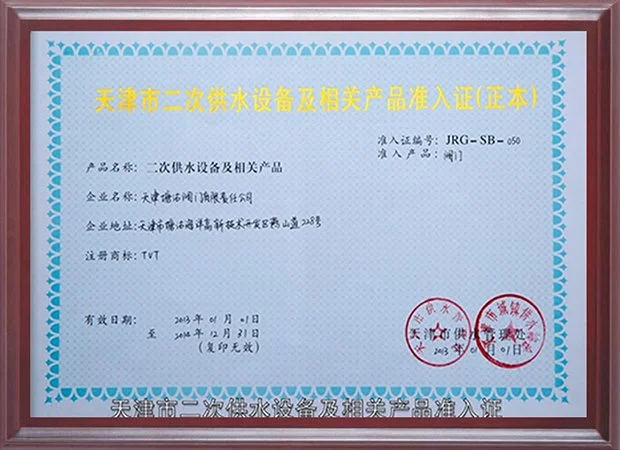 天津市二次供水设备及相关产品准入证(正本)
准入证编号: JRG-SB-050
准入产品: 阀门
产品名称: 二次供水设备及相关产品
企业名称: 天津塘沽阀门有限责任公司
企业地址: 天津市塘沽海洋高新技术开发区燕山道228号
注册商标: TVT
有效日期: 2013年01月01日
至 12月31日
(复印无效)
天津市供水管理处
2013年01月01日
天津市二次供水设备及相关产品准入证